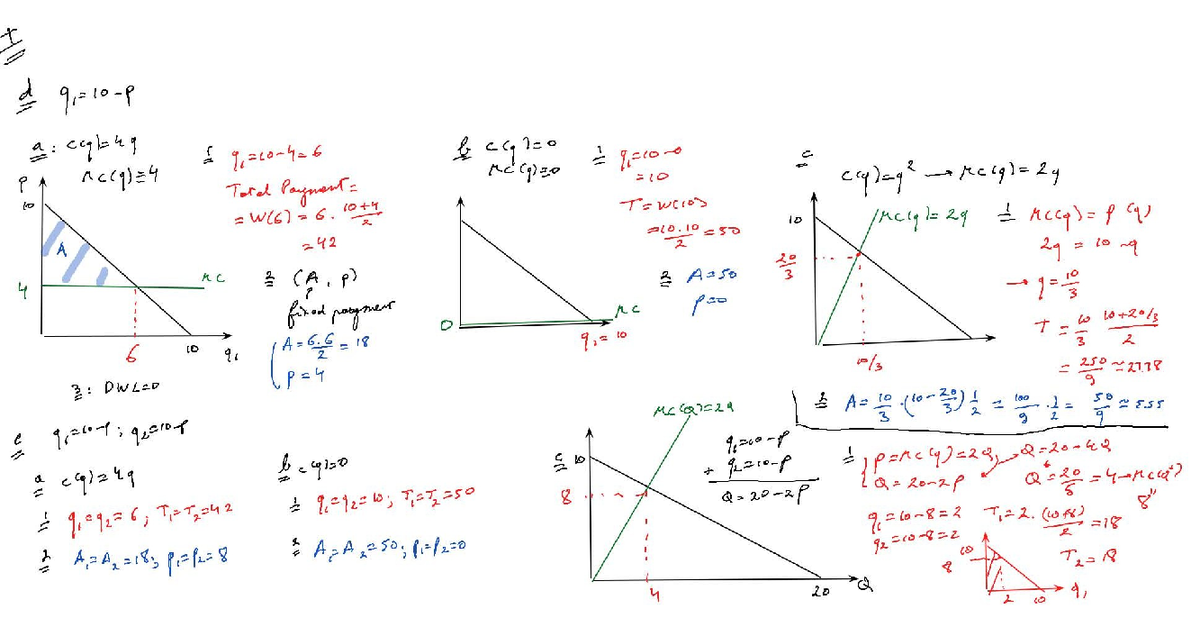 d q₁=10-p
a: c(q)=4q
MC(q)=4
P
10
A
4
MC
6
10 q₁
3: DWL=0
1 q₁=10-4=6
Total Payment=
=W(6)=6·(10+4)/2
=42
2 (A, p)
fixed payment
A=6·6/2=18
p=4
b c(q)=0
MC(q)=0
0
MC
q₁=10
1 q₁=10-0
=10
T=W(10)
=10·10/2=50
2 A=50
p=0
c
c(q)=q² → MC(q)=2q
10
MC(q)=2q
20/3
10/3
1 MC(q)=p(q)
2q=10-q
→ q=10/3
T=10/3 (10+20/3)/2
=250/9≈27.78
2 A=10/3·(10-20/3)1/2=100/9·1/2=50/9≈5.55
e q₁=10-p; q₂=10-p
a c(q)=4q
1 q₁=q₂=6; T₁=T₂=42
2 A₁=A₂=18; p₁=p₂=8
b c(q)=0
1 q₁=q₂=10; T₁=T₂=50
2 A₁=A₂=50; p₁=p₂=0
c
10
MC(Q)=2Q
8
4
20
Q
q₁=10-p
+ q₂=10-p
Q=20-2p
1 p=MC(q)=2Q → Q=20-4Q
Q=20-2p
Q*=20/5=4→MC(Q*)
8"
q₁=10-8=2
q₂=10-8=2
T₁=2·(10+8)/2=18
T₂=18
10
8
2
10
q₁